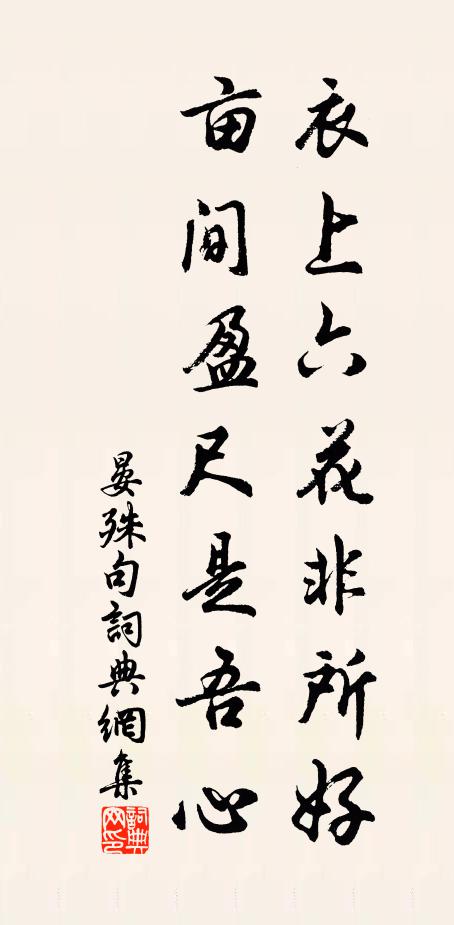 衣上六花非所好
亩间盈尺是吾心
晏殊句詞典網集
詞典网印